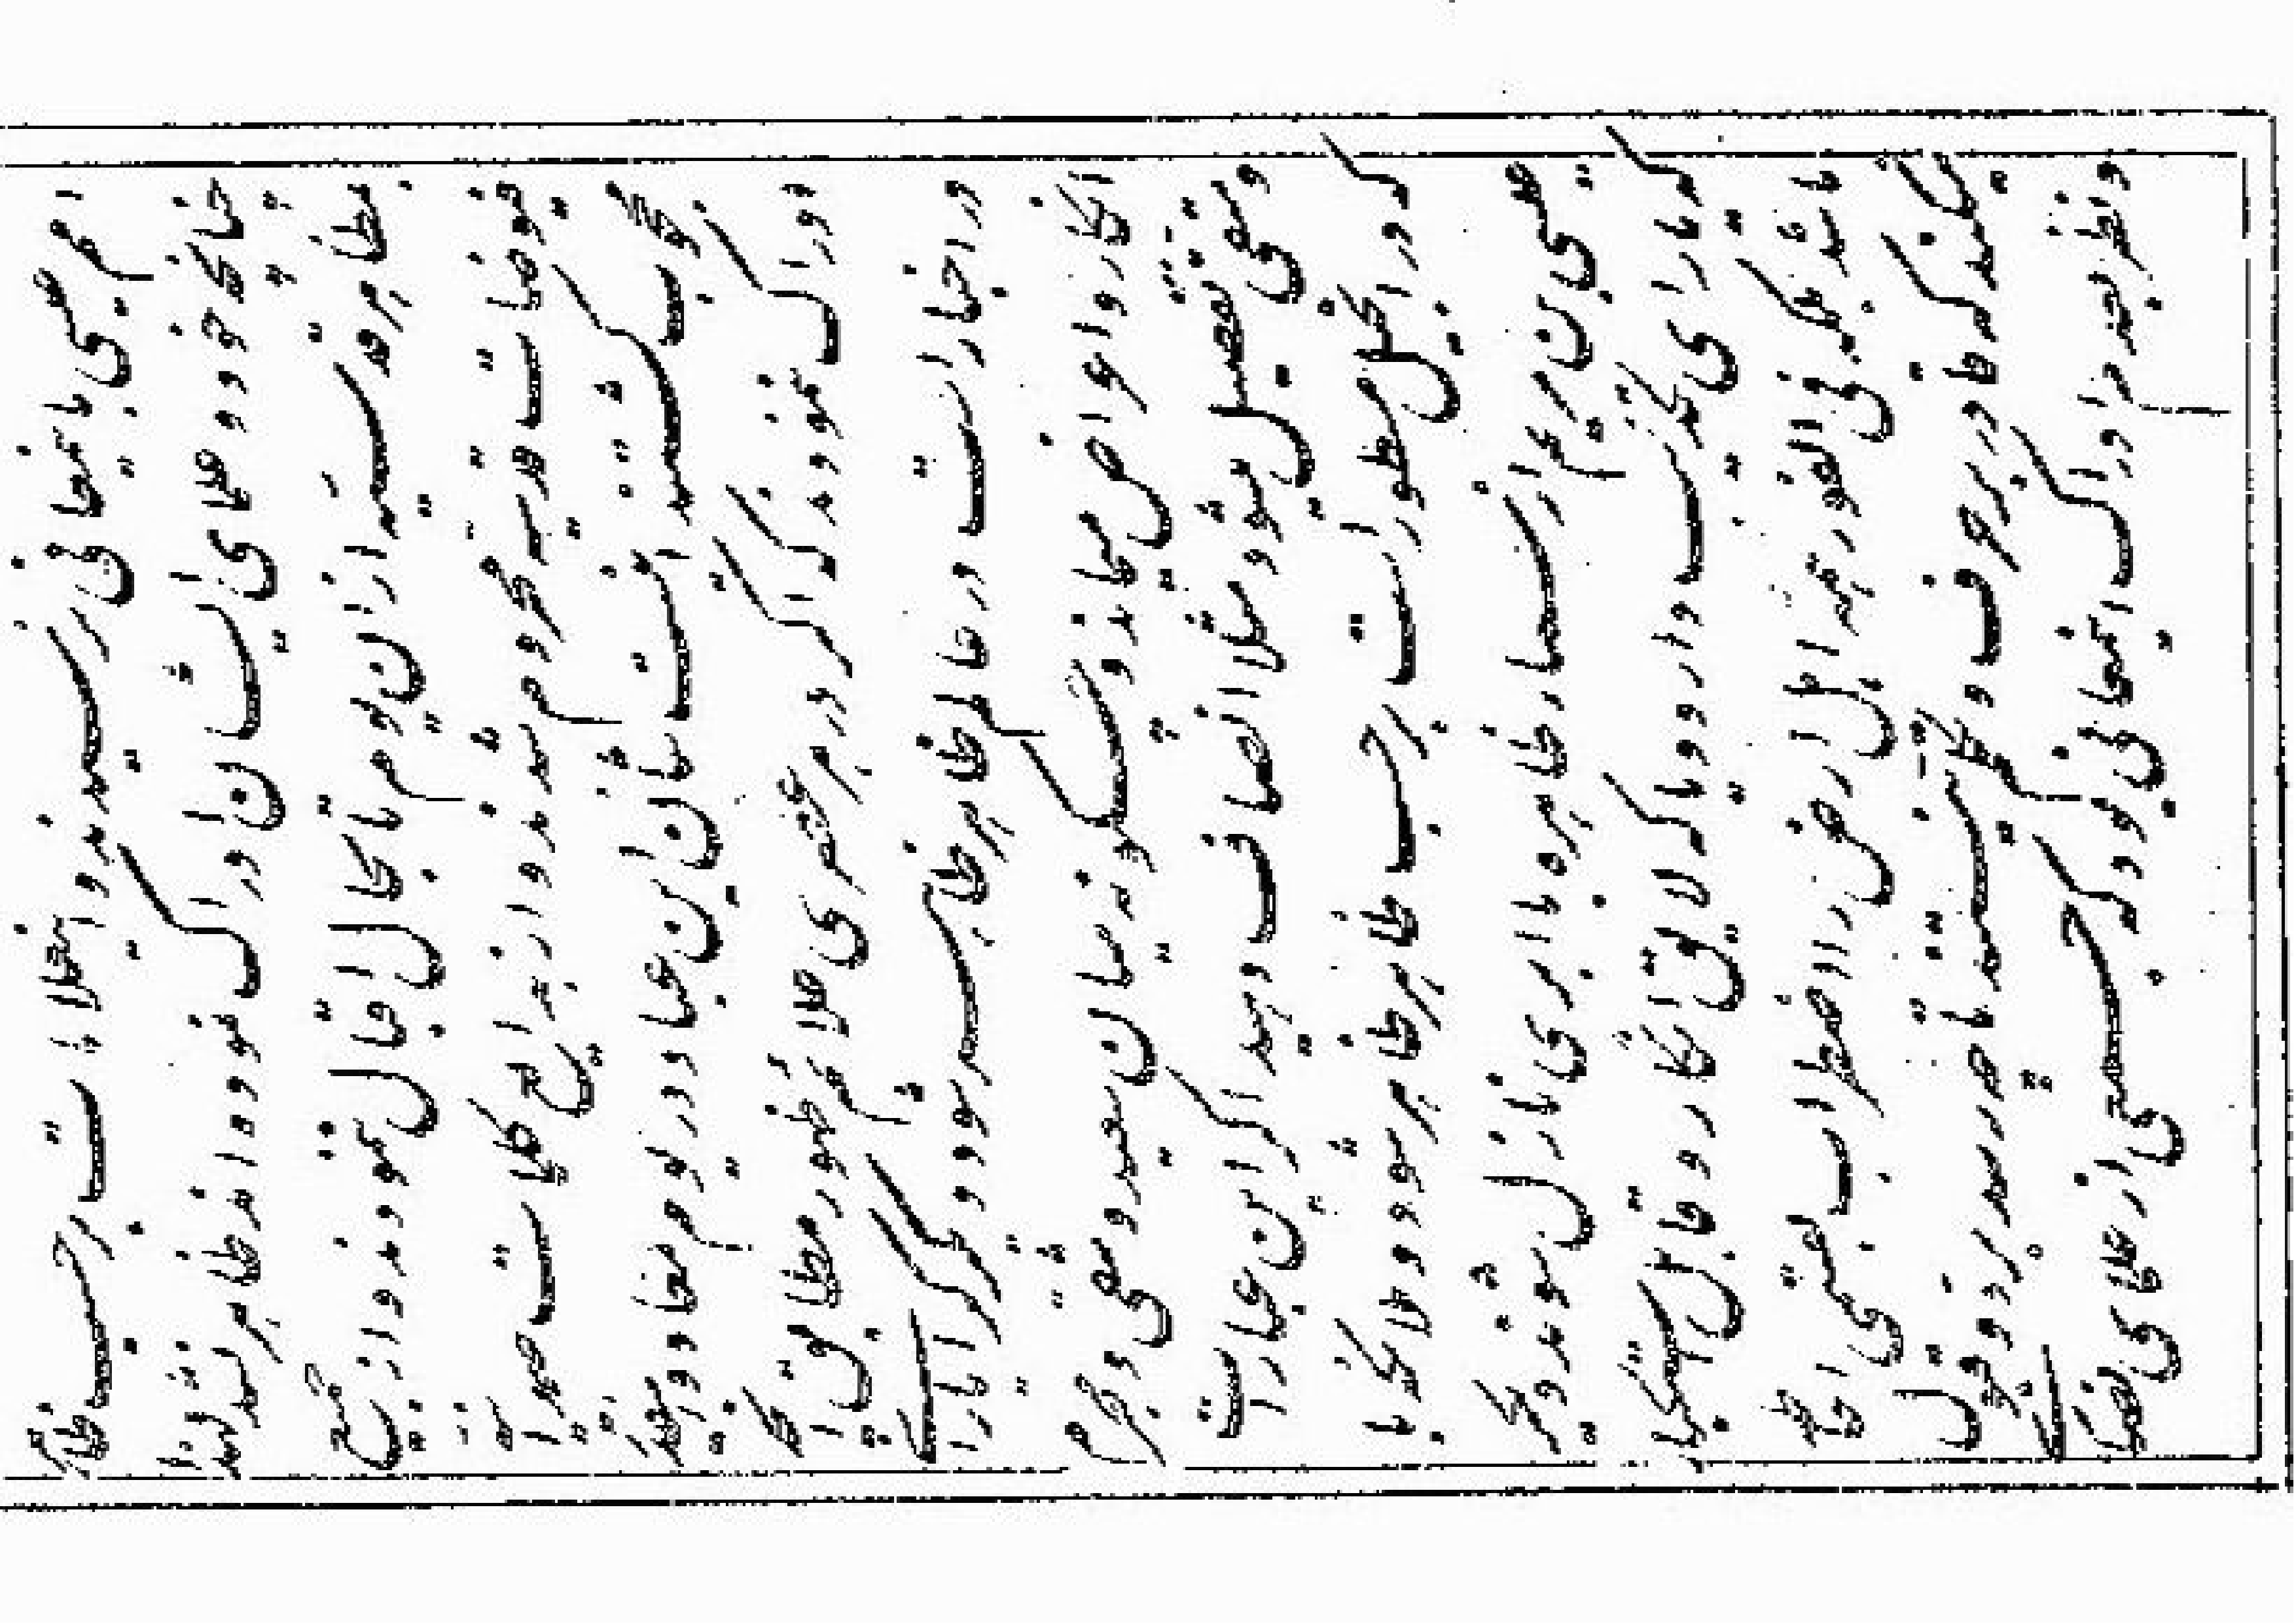 امم عیسی باینمعانی نرسیدند و این علامات بر حسب ظاهر
چنانکه خود و علمای ایشان ادراک نموده اند ظاهر نشد لهذا
بمظاهر قدسیّه از آن یوم تا بحال اقبال ننمودند و از جمیع
فیوضات قدسیّه محروم شدند و از بدایع کلمات صمدانیّه
محجوب گشتند اینست شأن این عباد در یوم معاد و اینقدر
ادراک ننمودند که اگر در هر عصری علائم ظهور مطابق آنچه
در اخبار است در عالم ظاهر ظاهر شود دیگر که را یارای
انکار و اعراض میماند و چگونه میان سعید و شقی و مجرم
و متقی تفصیل میشود مثلا انصاف دهید اگر این عبارات
که در انجیل مسطور است بر حسب ظاهر ظاهر شود و ملائکه با
عیسی بن مریم از سماء ظاهره با ابری نازل شوند دیگر
که یارای تکذیب دارد و یا که لایق انکار و قابل استکبار
باشد بلکه فی الفور همهٔ اهل ارض را اضطراب بقسمی احاطه
میکند که قادر بر حرف و تکلّم نیستند تا چه رسد برد و قبول
و نظر بعدم ادراک اینمعانی بود که جمعی از علمای نصاری